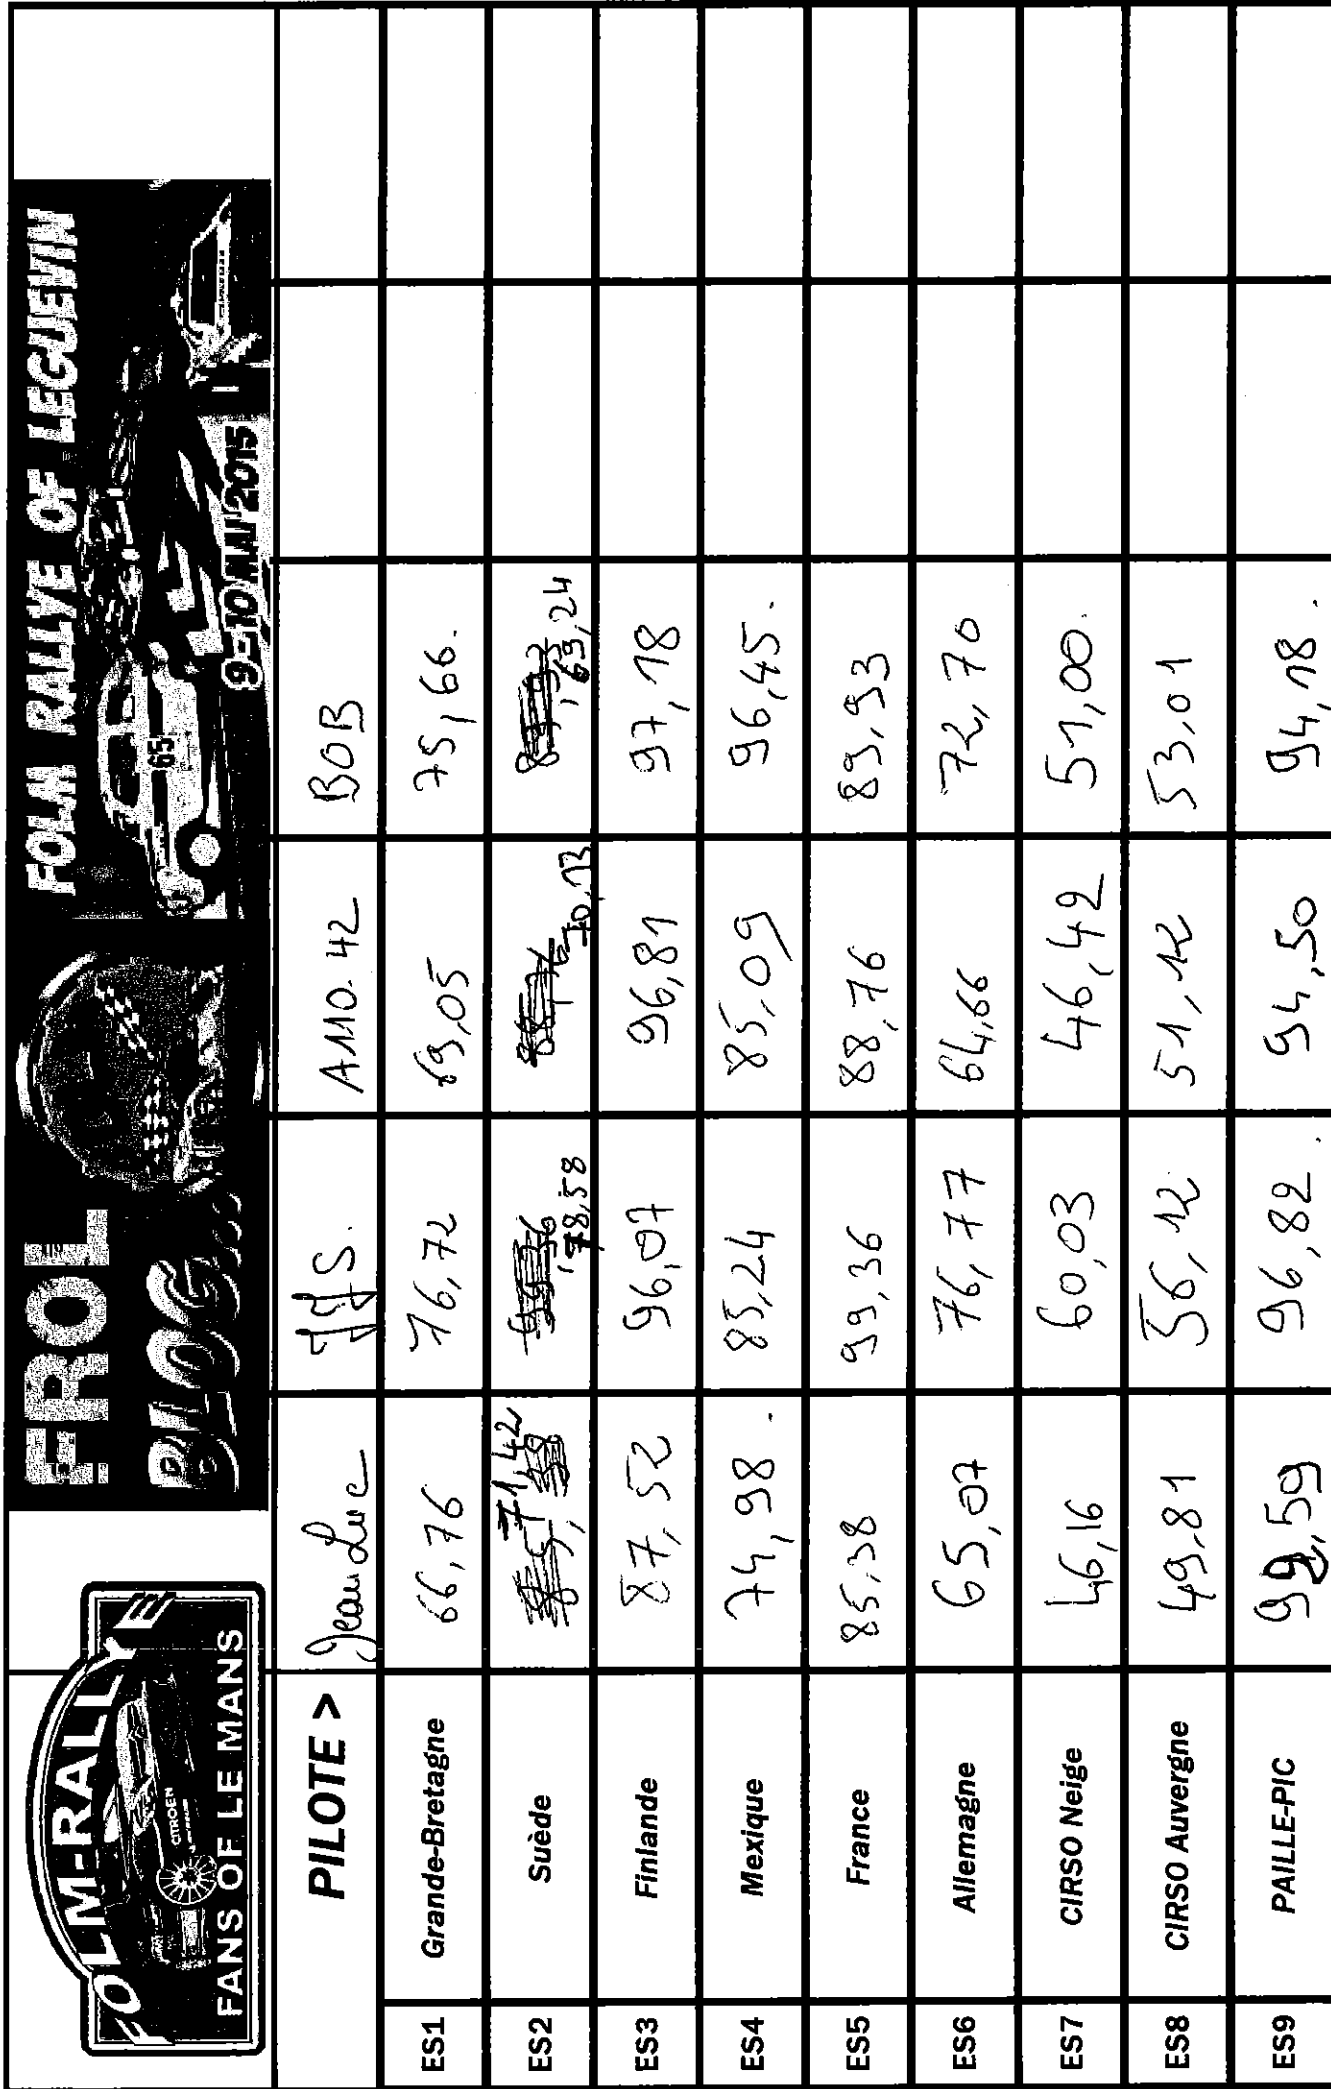 FOLM-RALLYE
CITROEN
FANS OF LE MANS
FROL
BLOG...
FOLM RALLYE OF LEGUEVIN
65
9-10 MAI 2015
PILOTE > Jean Luc JJS. A110.42 BOB
ES1 Grande-Bretagne 66,76 76,72 69,05 75,66.
ES2 Suède 85,38 71,42 99,36 78,58 88,76 70,13 89,93 69,24
ES3 Finlande 87,52 96,07 96,81 97,18
ES4 Mexique 74,98. 85,24 85,09 96,45.
ES5 France 85,38 99,36 88,76 89,93
ES6 Allemagne 65,07 76,77 64,66 72,70
ES7 CIRSO Neige 46,16 60,03 46,42 51,00.
ES8 CIRSO Auvergne 49,81 56,12 51,12 53,01
ES9 PAILLE-PIC 99,59 96,82. 94,50 94,18.